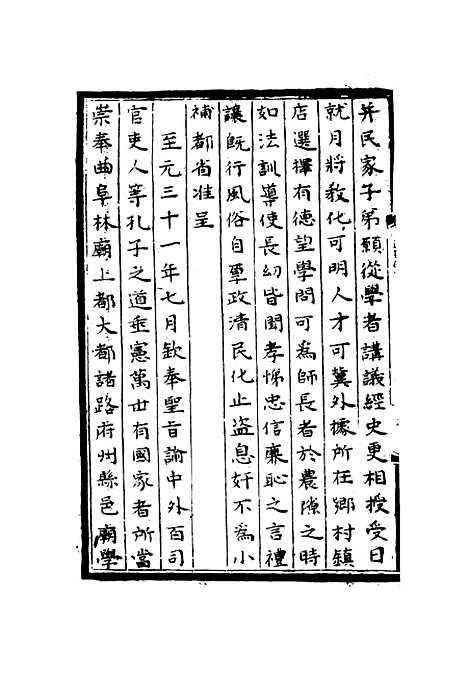 并民家子弟願從學者講議經史更相授受日
就月將教化可明人才可冀外據所在鄉村鎮
店選擇有德望學問可為師長者於農隙之時
如法訓導使長幼皆聞孝悌忠信廉恥之言禮
讓既行風俗自厚政清民化止盗息奸不為小
補都省准呈
至元三十一年七月欽奉聖旨諭中外百司
官吏人等孔子之道垂憲萬世有國家者所當
崇奉曲阜林廟上都大都諸路府州縣邑廟學